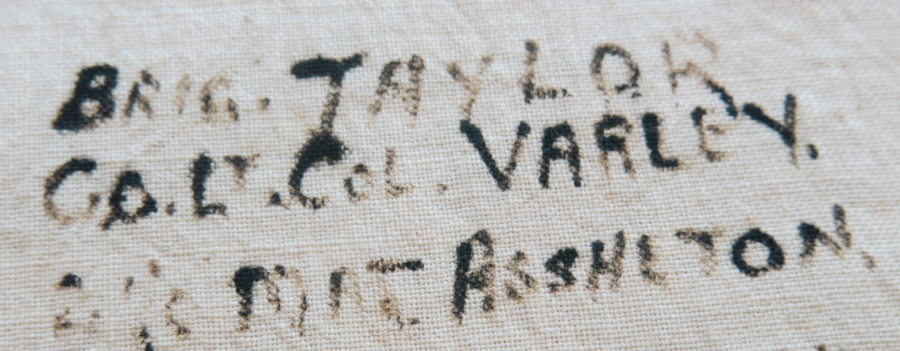 BRIG. TAYLOR
CO. LT. COL. VARLEY.
2 I/C MAJ. ASSHETON,